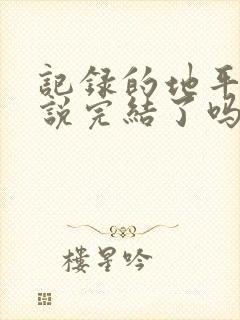 記錄的地平
說完結了吗
樓星吟